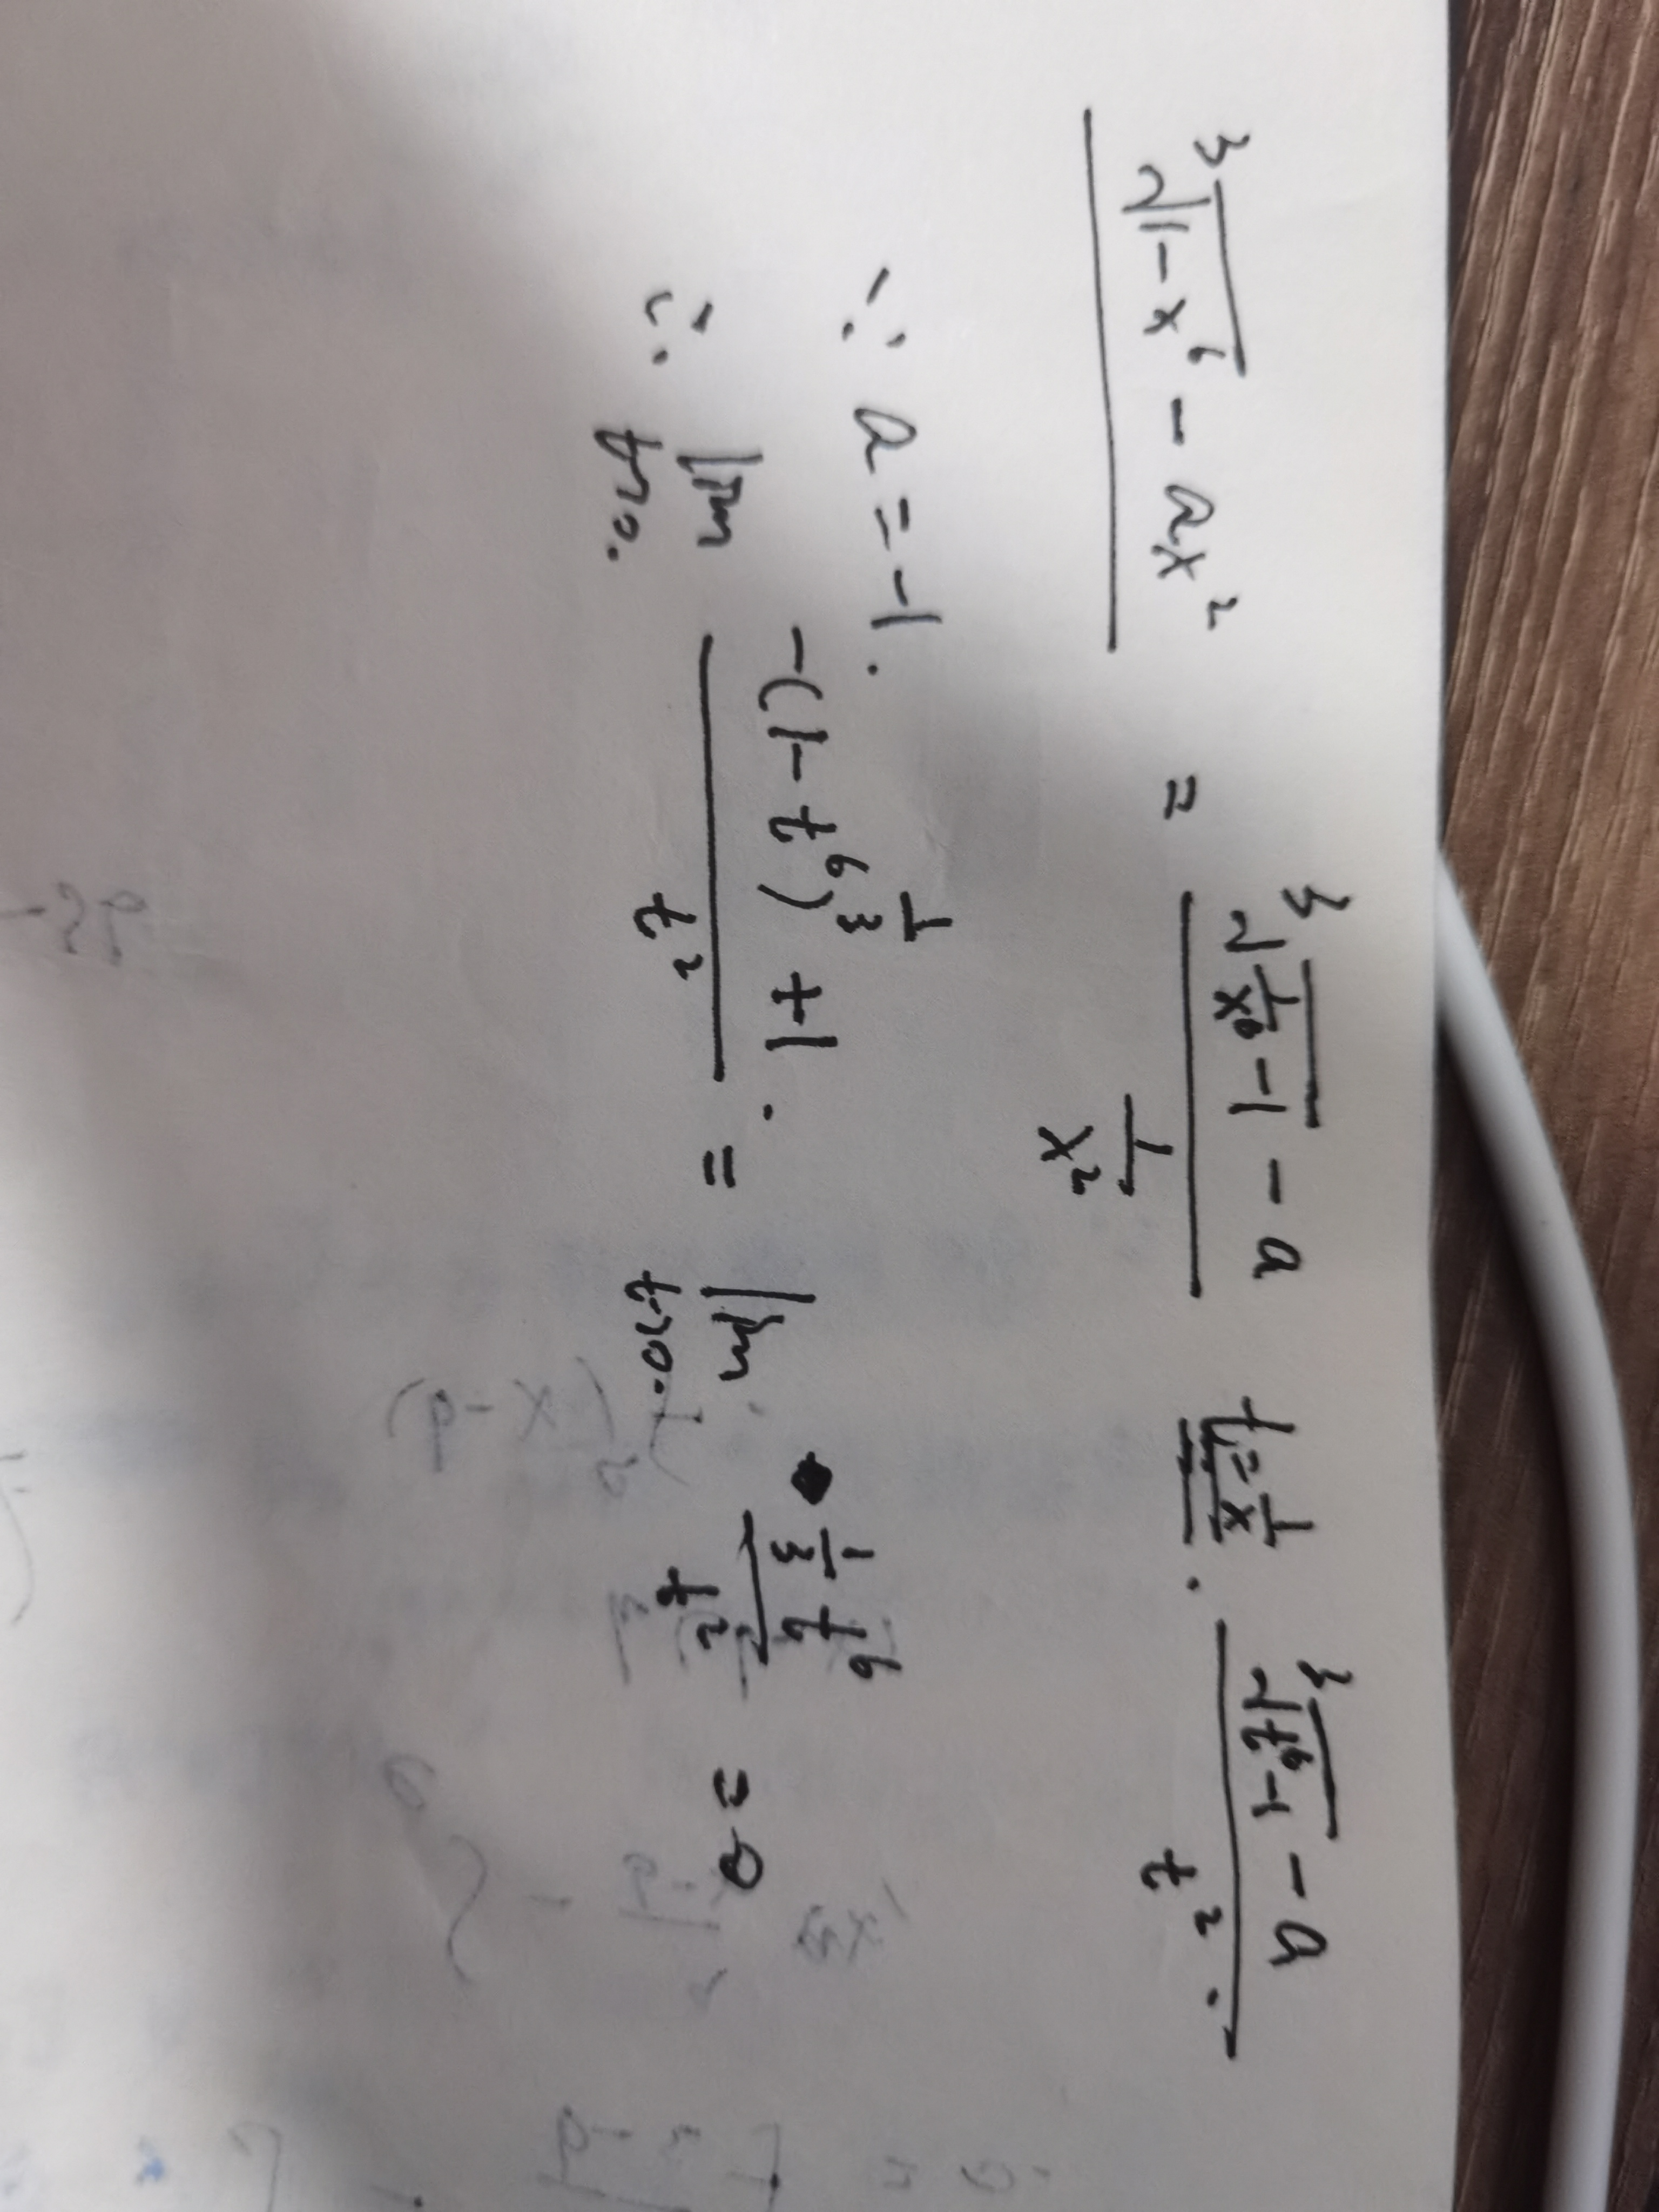 ∛(1-x⁶) - ax² = (∛(1/x⁶ - 1) - a)/(1/x²) t=1/x . (∛(t⁶-1) - a)/t² .
∵ a = -1 .
∴ lim t→0. (-(1-t⁶)^(1/3) + 1)/t² . = lim t→0. (1/3 t⁶)/t² = 0